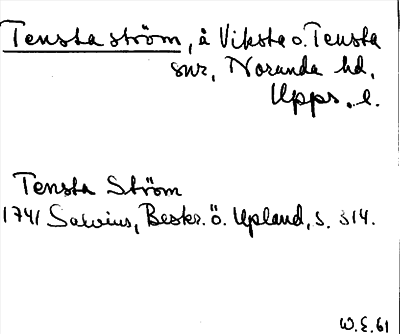 Tensta ström, å Viksta o. Tensta
snr, Norunda hd,
Upps. l.
Tensta Ström
1741 Salvius, Beskr. ö. Upland, s. 314.
W.E. 61